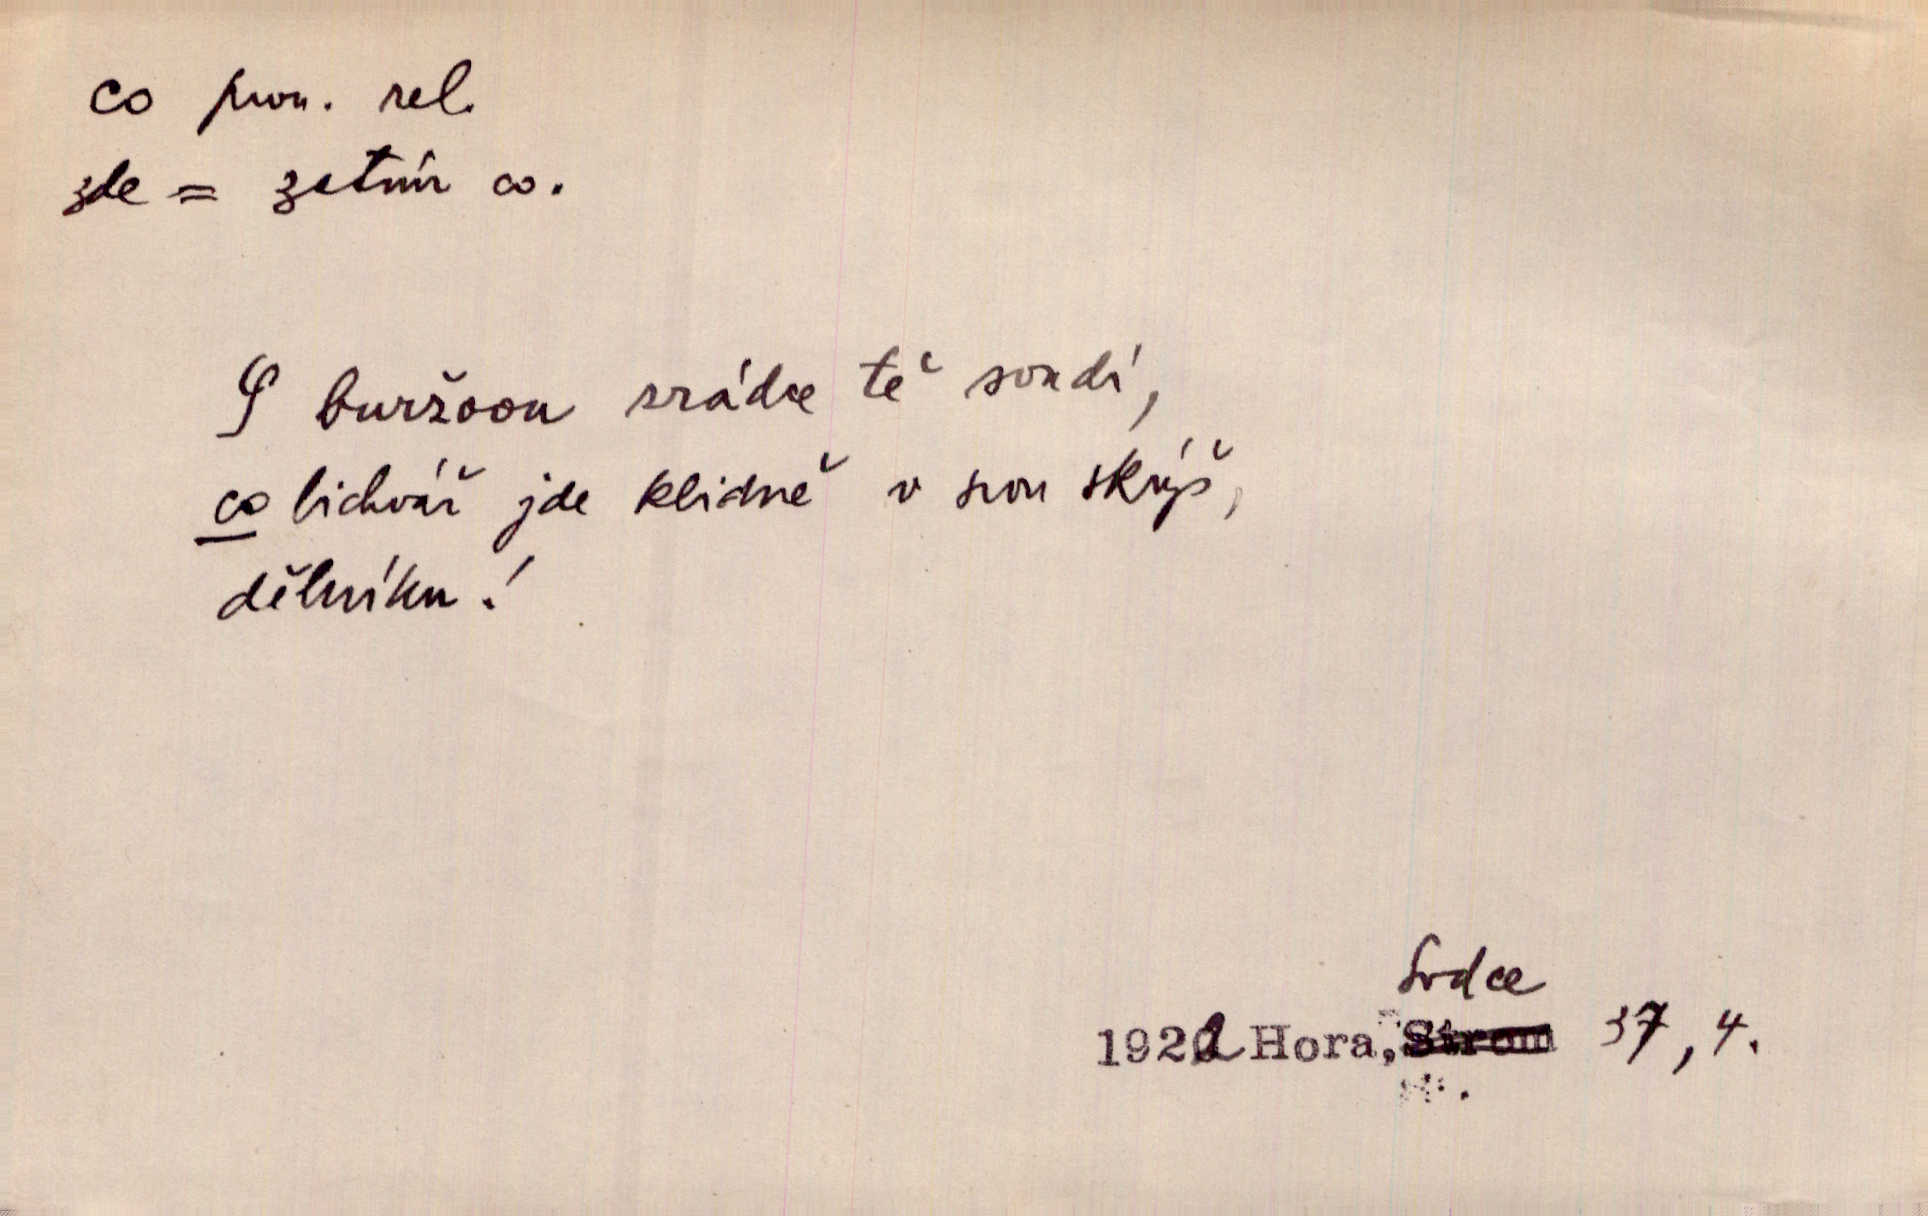 co pron. rel.
zde = zatím co.
S buržoou zrádce tě soudí,
co lichvář jde klidně v svou skrýš,
dělníku!
Srdce
1922 Hora, Strom 37, 4.